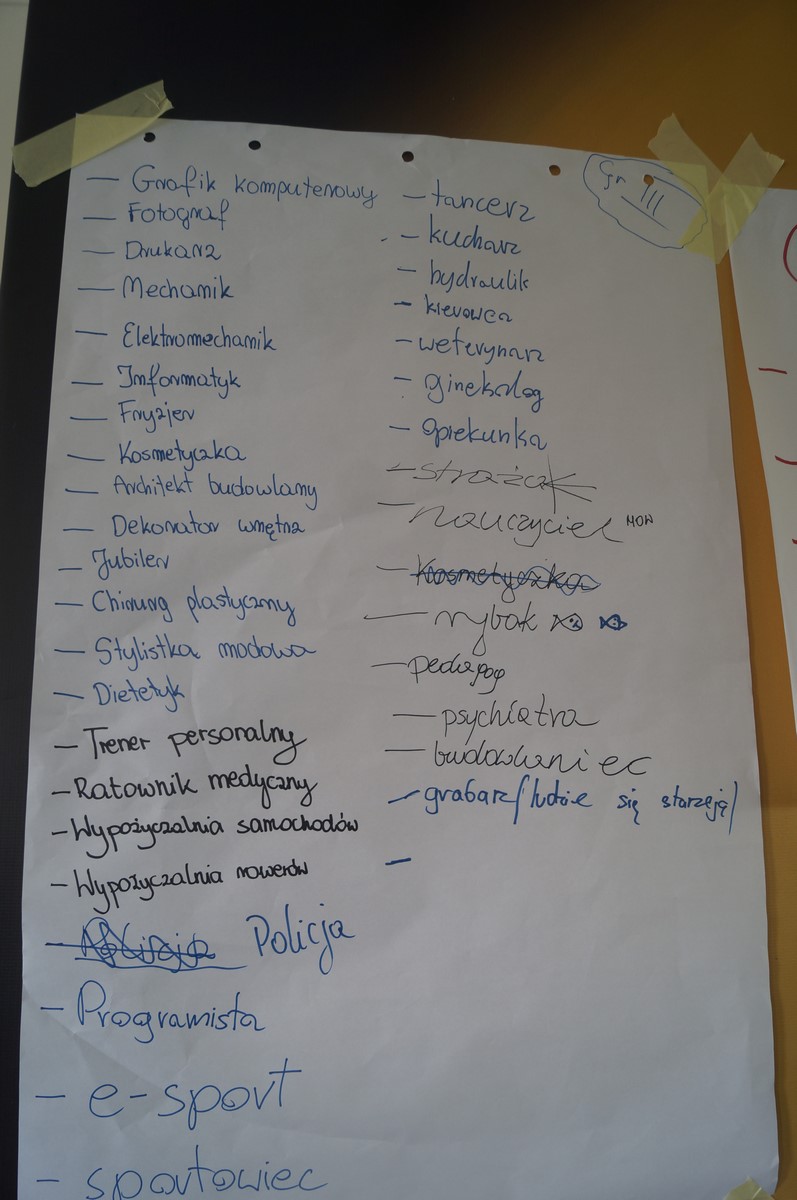 Gr III
— Grafik komputerowy
— Fotograf
— Drukarz
— Mechanik
— Elektromechanik
— Informatyk
— Fryzjer
— Kosmetyczka
— Architekt budowlany
— Dekorator wnętrz
— Jubiler
— Chirurg plastyczny
— Stylistka modowa
— Dietetyk
— Trener personalny
— Ratownik medyczny
— Wypożyczalnia samochodów
— Wypożyczalnia rowerów
— Policja
— Programista
— e-sport
— sportowiec
— tancerz
— kucharz
— hydraulik
— kierowca
— weterynarz
— ginekolog
— opiekunka
— strażak
— nauczyciel MOW
— kosmetyczka
— rybak
— pedagog
— psychiatra
— budowlaniec
— grabarz/ludzie się starzeją/
—